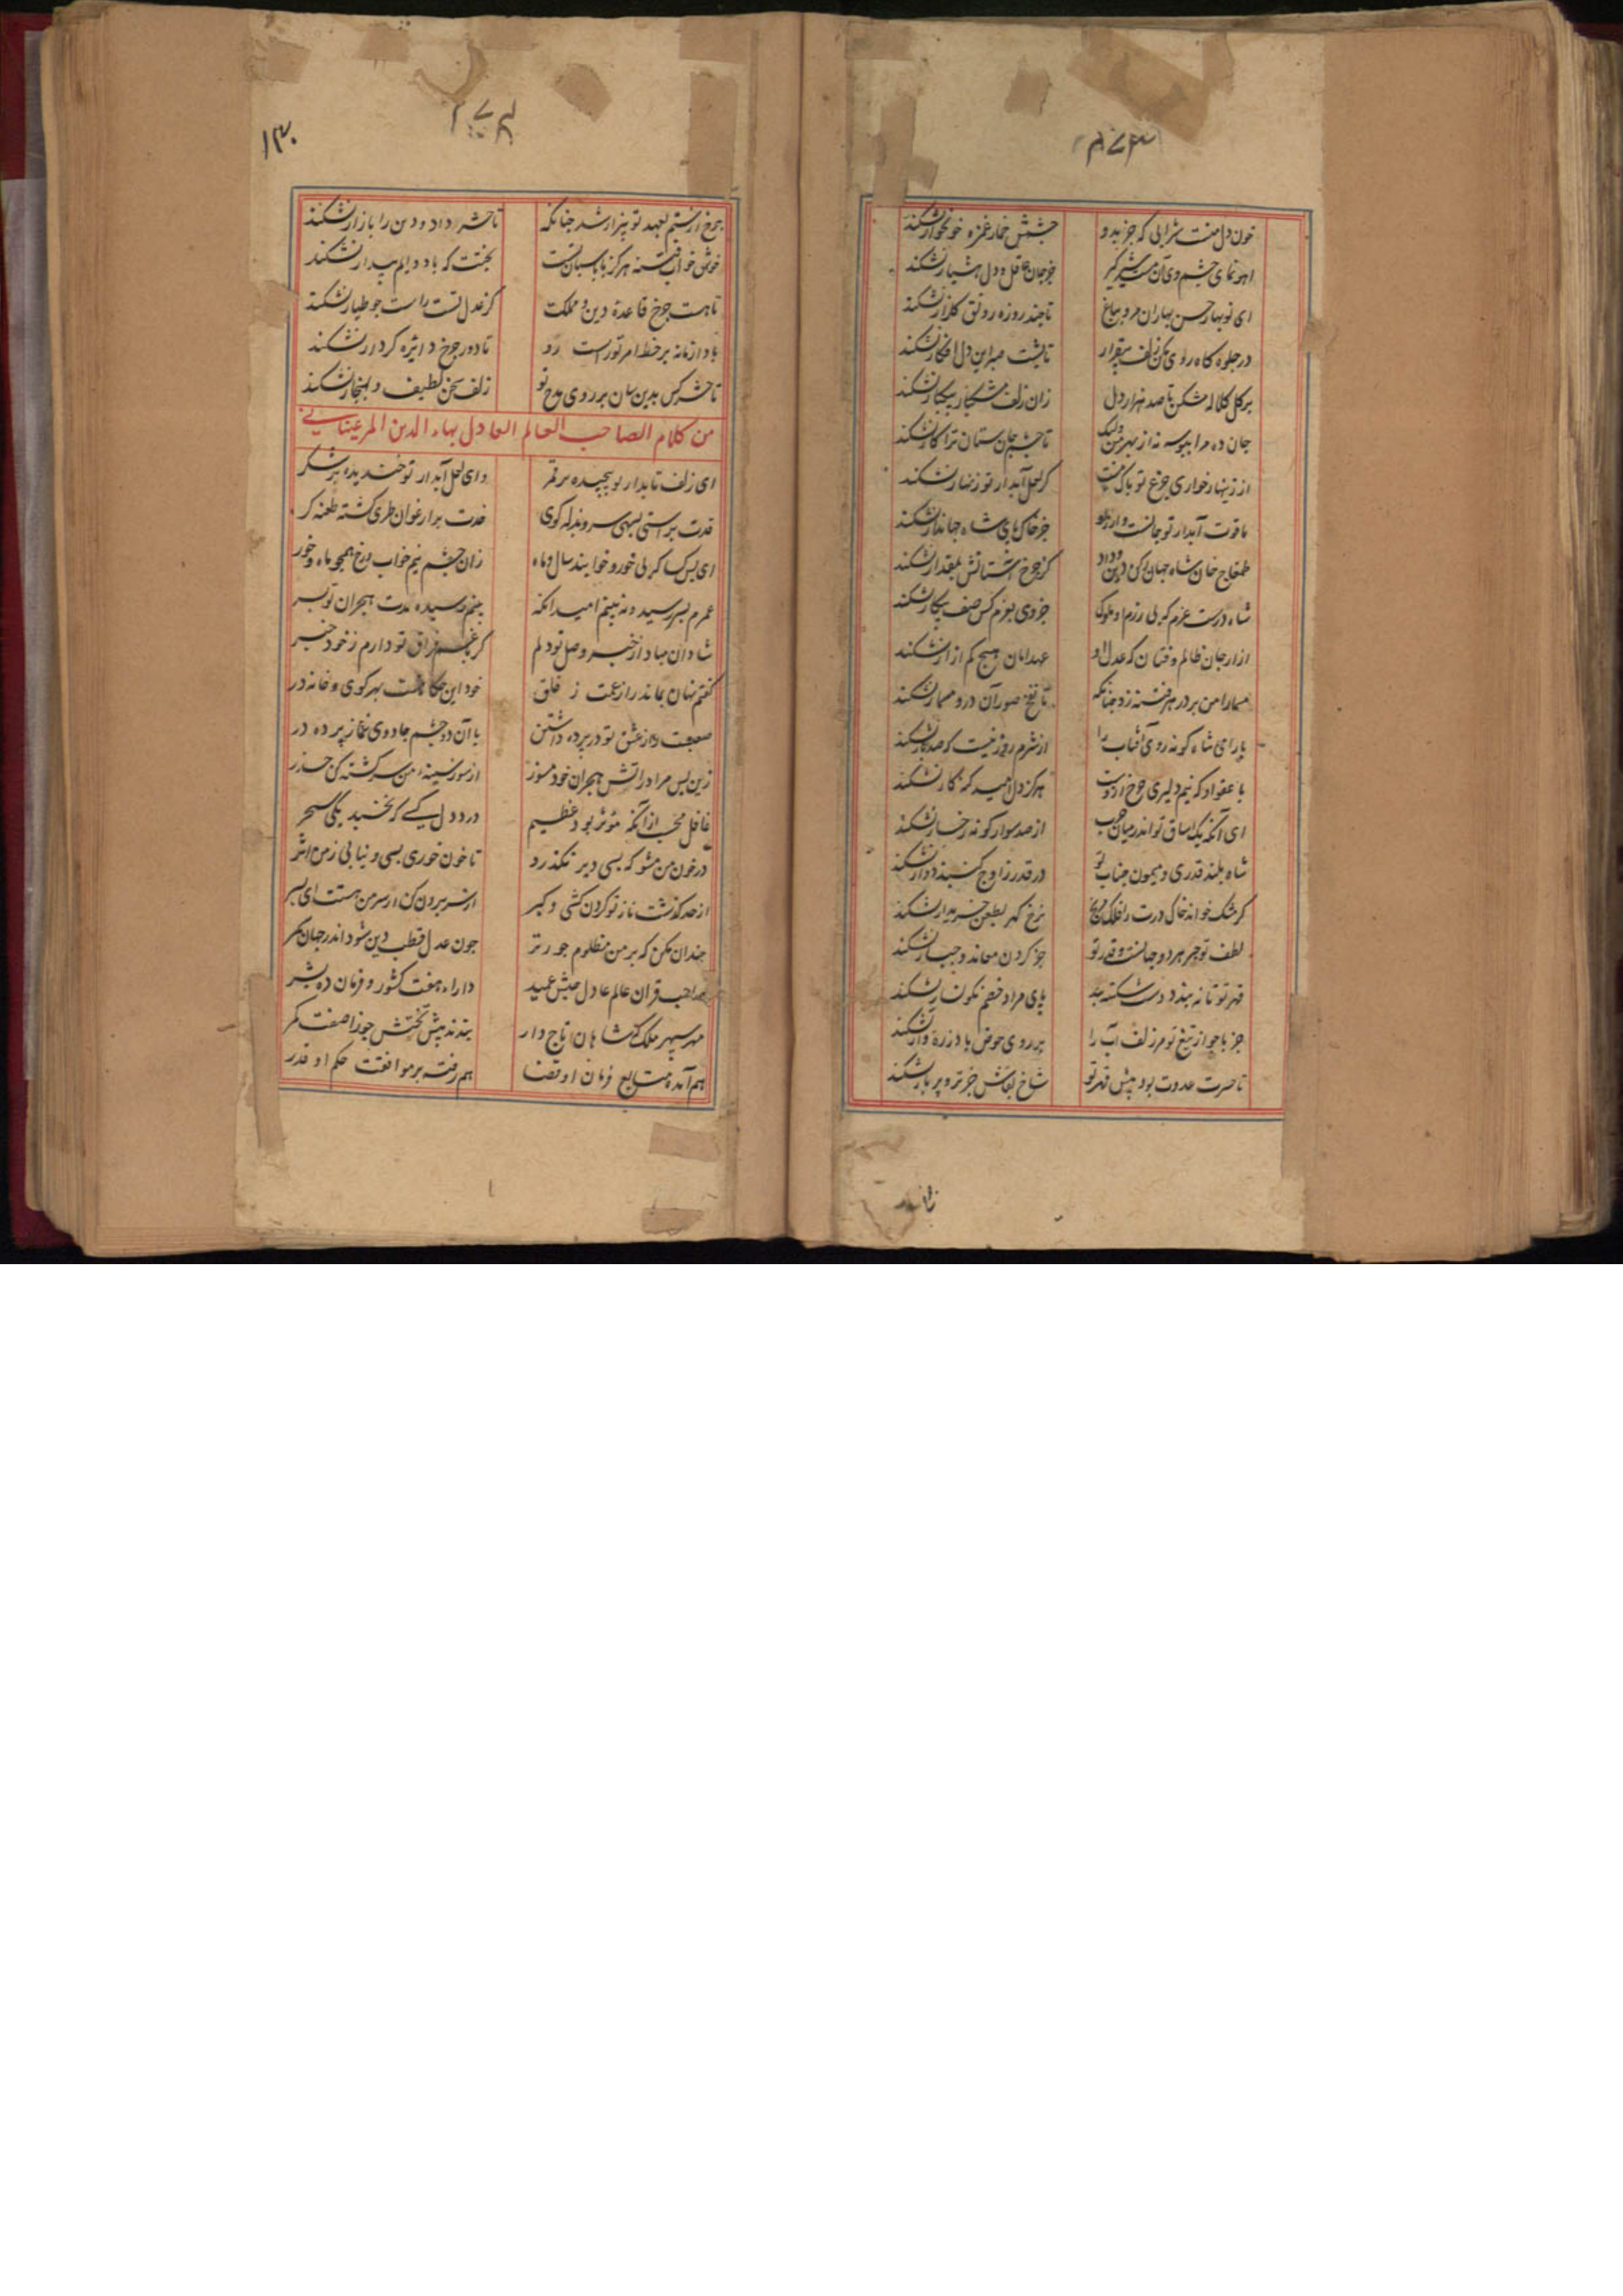 خون دل منست شرابی که جز بدو چشمش خمار غمزه خونخوار نشکند
آهو نمای چشم وی آن مست شیرگیر جز جان عاقل و دل هشیار نشکند
ای نوبهار حسن بهاران مرو بباغ تا چند روزه رونق گلزار نشکند
در جلوه گاه روی مکن زلف بیقرار تا پشت صبر این دل افکار نشکند
بر گل کلاله مشکن تا صد هزار دل زان زلف مشکبار بیکبار نشکند
جان ده مرا ببوسه نه از بهر من ولیک تا چشم جان ستان ترا کار نشکند
از زینهار خواری گر لعل آبدار تو زنهار نشکند
یاقوت آبدار تو جز خاک پای شاه جهاندار نشکند
طمغاج خان شاه جهان رکن دین و داد کز چرخ آستانش بمقدار نشکند
شاه درست عزم که بی رزم او ملوک جز وی بعزم کس صف پیکار نشکند
ازار جان ظالم و فتان که عدل او عهد امان بهیچ کم ازار نشکند
مسمار امن بر در هر فتنه زد چنانکه تا نفخ صور آن در و مسمار نشکند
با رای شاه گونه روی آفتاب را از شرم روز نیست که صد بار نشکند
با عفو او که نیم دلیری چرخ ازوست هرگز دل امید گنه کار نشکند
ای آنکه یک ساق تو اندر میان حرب از صد سوار گونه رخسار نشکند
شاه بلند قدری و میمون جناب تو در قدر ز اوج گنبد دوار نشکند
گر مشک خواند خاک درت را فلک مرنج نرخ گهر بطعن خریدار نشکند
لطف تو جبر هر دو جهانست و قدر تو جز گردن معاند و جبار نشکند
قهر تو تا نه بندد دست شکسته بند پای مراد خصم نگونسار نشکند
جز باجواز تیغ تو مر زلف آب را بر روی حوض باد زره وار نشکند
تا صرصرت عدوت بود پیش قهر تو شاخ بقاش جز تر و پر بار نشکند
۱۳۰
چرخ از ستم بعهد تو بیزار شد چنانکه تا حشر داد و دین را بازار نشکند
خوش خواب فتنه هرگز با پاسبان تست بختت که باد دایم بیدار نشکند
تا هست چرخ قاعده دین و مملکت کز عدل تست راست چو طیار نشکند
بادا زمانه بر خط امر تو راست رو تا دور چرخ دایره کردار نشکند
تا حشر کس بدین سان بر روی مدح تو زلف سخن لطیف و بهنجار نشکند
من کلام الصاحب العالم العادل بهاء الدین المرغینانی
ای زلف تابدار تو پیچیده بر قمر وای لعل آبدار تو خندیده بر شکر
قدت براستی بسهی سرو بذله گوی خدت بر ارغوان طری گشته طعنه گر
ای بس کسا که بی خور و خوابند سال و ماه زان چشم نیم خواب و رخ همچو ماه و خور
عمرم بسر رسید و نه بینم امید انکه بینم رسیده مدت هجران تو بسر
شادان مباد از خبر وصل تو دلم گر با غم فراق تو دارم ز خود خبر
گفتم نهان بماند راز غمت ز خلق خود این حکایتست بهر کوی و خانه در
صعبست راز عشق تو در پرده داشتن با آن دو چشم جادوی غماز پرده در
زین پس مرا در آتش هجران خود مسوز از سوز سینه من سرگشته کن حذر
غافل مخسب از آنکه مؤثر بود عظیم درد دل کسی که نخسبد یکی سحر
در خون من مشو که بسی دیر نگذرد تا خون خوری بسی و نیابی ز من اثر
از حد گذشت ناز تو کردن کشی و کبر از سر برون کن ار سر من هستت ای پسر
چندان مکن که بر من مظلوم جور تر چون عدل قطب دین شود اندر جهان سمر
صاحب قران عالم عادل حبش عمید داراء هفت کشور و فرمان ده بشر
مهر سپهر ملک که شاهان تاج دار بندند پیش تختش جوزا صفت کمر
هم آمده متابع فرمان او قضا هم رفته بر موافقت حکم او قدر